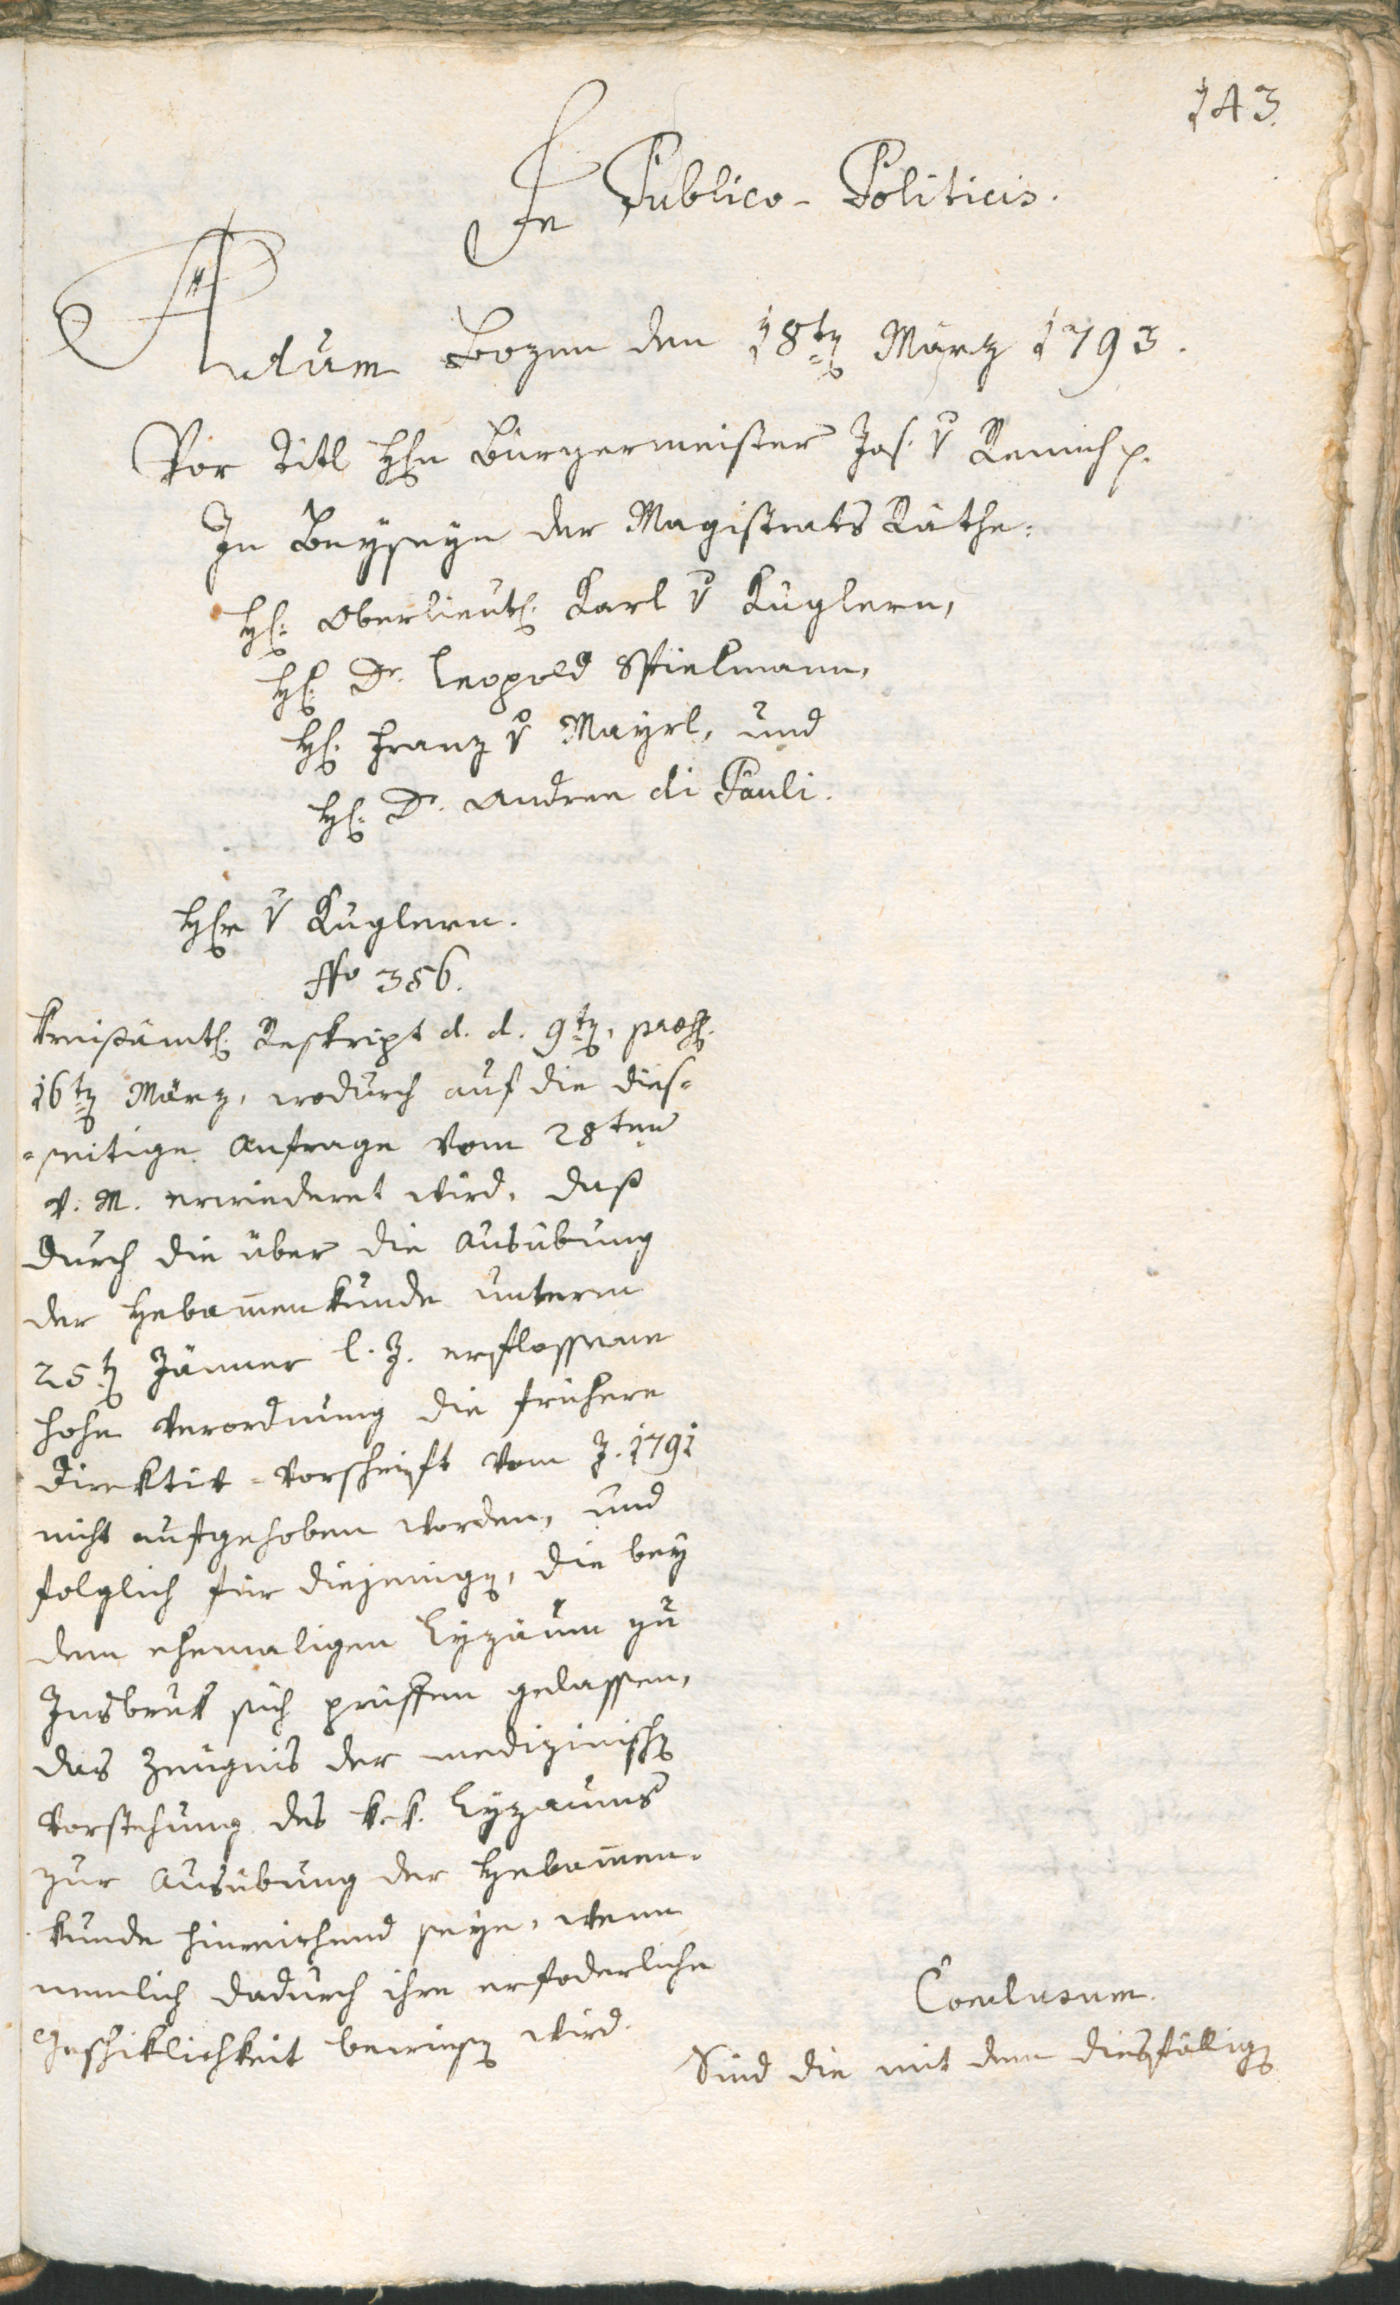 143.
In Publico-Politicis.
Actum Bozen den 18tn März 1793.
Vor Titl Hhn Bürgermeister Jos. v Remich p.
In Beyseyn der Magistrats Räthe:
Hh: Oberlieut: Karl v Kuglern,
Hh: Dr. Leopold Spielmann,
Hh: Franz v Mayrl, und
Hh: Dr. Andree di Pauli.
Hhr v Kuglern.
No 356.
Kreisämtl: Reskript d. d. 9tn, præs:
16tn März, wodurch auf die dies=
=seitige Anfrage vom 28ten
v. M. erwiederet wird, daß
durch die über die Ausübung
der Hebam̄enkunde unterm
25tn Jänner l. J. erflossene
hohe Verordnung die frühere
Direktiv=Vorschrift vom J. 1791
nicht aufgehoben worden, und
folglich für diejenign, die bey
dem ehemaligen Lyzäum zu
Insbruk sich prüffen gelassen,
das Zeugnis der medizinischn
Vorstehung des k. k. Lyzäums
zur Ausübung der Hebam̄en=
kunde hinreichend seye, wenn
nemlich dadurch ihre erfoderliche
Geschiklichkeit bewiesn wird.
Conclusum.
Sind die mit dem diesfällign